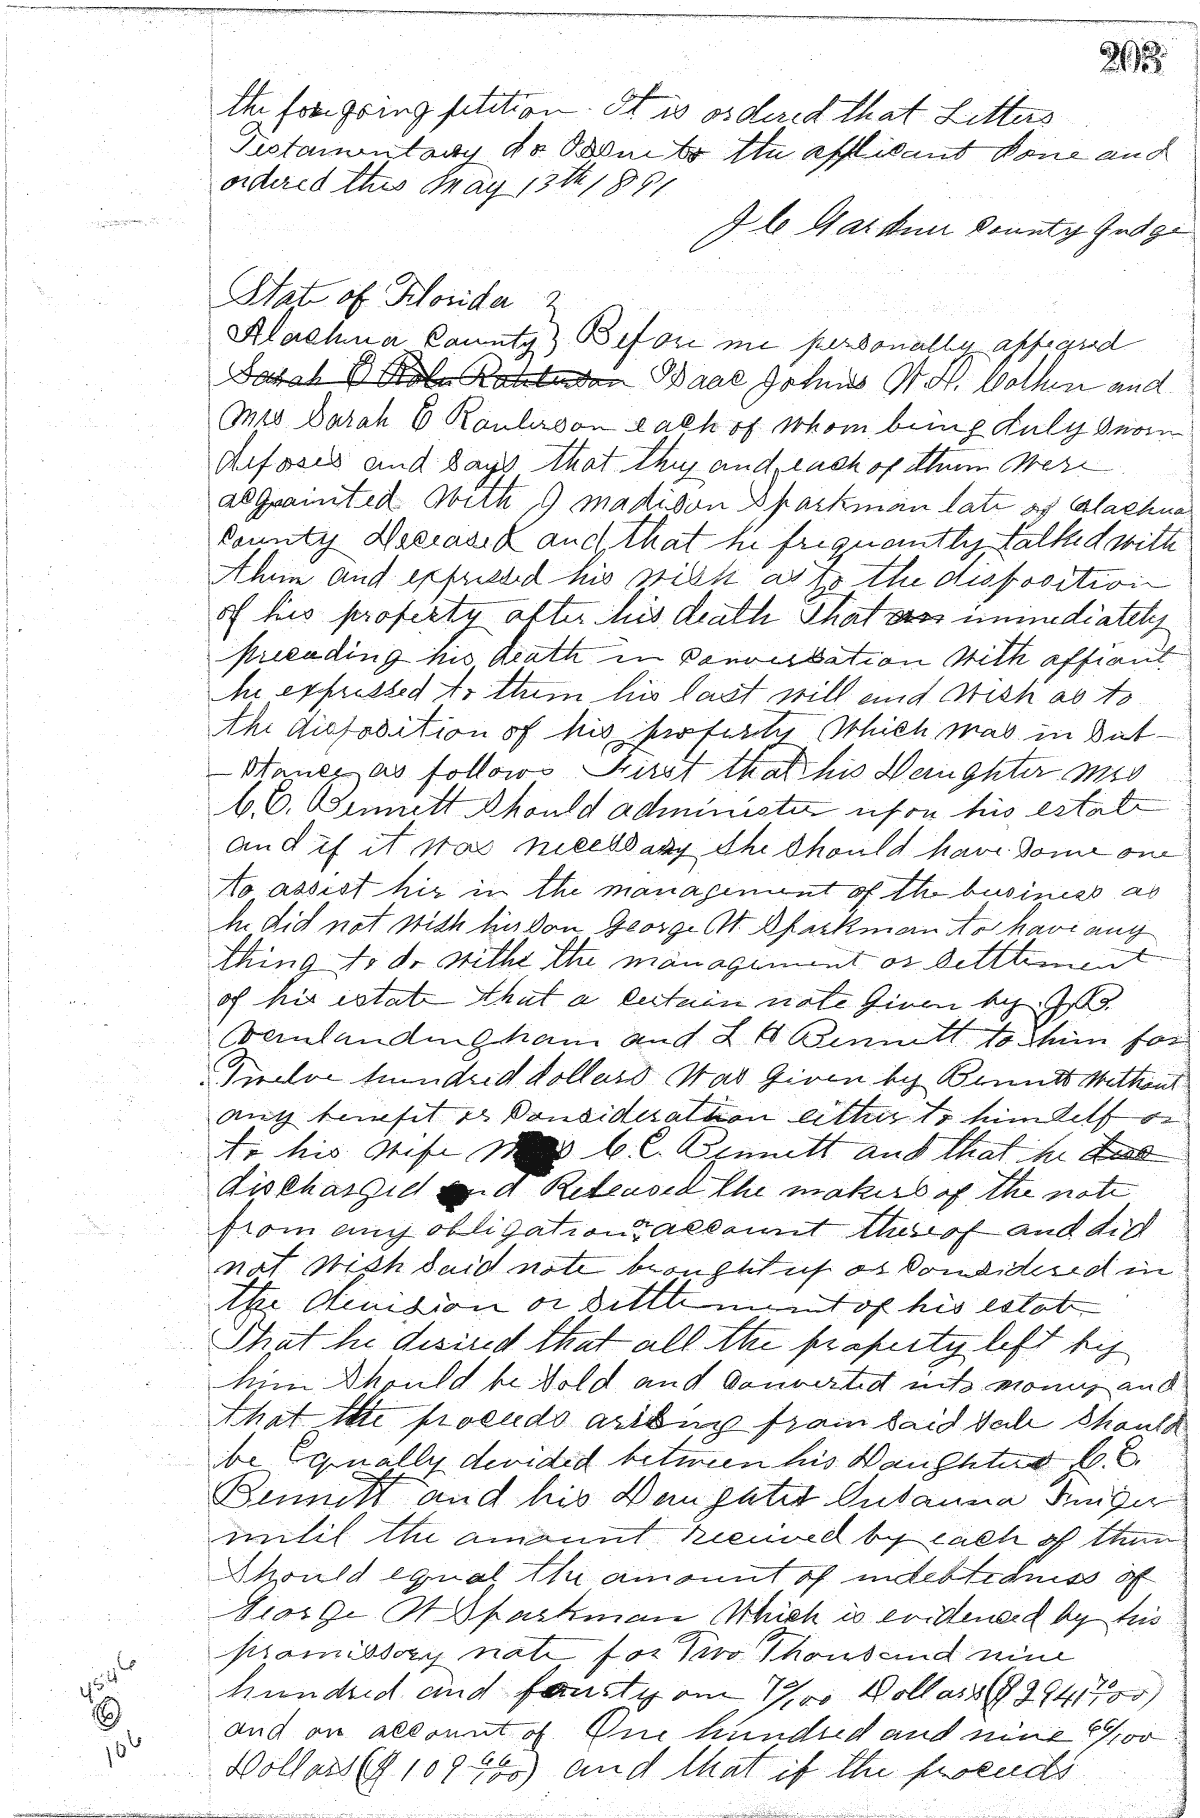 203
the foregoing petition. It is ordered that Letters
Testamentary do Issue to the applicant Done and
ordered this May 13th 1891
J C Gardner County Judge
State of Florida }
Alachua County } Before me personally appeared
Sarah E Isaac Johns W. H. and
Mrs Sarah E Raulerson each of whom being duly Sworn
deposes and Says that they and each of them Were
acquainted With J Madison Sparkman late of Alachua
County Deceased and that he frequantly talked with
them and expressed his wish as to the disposition
of his property after his death That immediately
preceding his death in Conversation With affiant
he expressed to them his last will and Wish as to
the disposition of his property Which was in Sub-
-Stance as follows First that his Daughter Mrs
C. E. Bennett Should administer upon his estate
and if it was necessary She Should have Some one
to assist her in the management of the business as
he did not wish his Son George W Sparkman to have any
thing to do withe the management or Setttement
of his estate that a Certain note Given by J. B.
Vanlandingham and L H Bennett to him for
Twelve hundred dollars Was Given by Bennett Without
any benefit or Consideration either to himself or
to his Wife Mrs C. E. Bennett and that he
discharged and Released the makers of the note
from any obligation on account thereof and did
not Wish Said note brought up or Considered in
the devision or Settlement of his estate
That he desired that all the property left by
him Should be Sold and Converted into money and
that the proceeds arising from Said Sale Should
be Equally devided between his Daughters C. E.
Bennett and his Daughter Susanna
until the amount received by each of them
Should equal the amount of indebtedness of
George W Sparkman Which is evidenced by his
promissory note for Two Thousand nine
hundred and fourty one 70/100 Dollars ($2941 70/100)
and on account of One hundred and nine 66/100
Dollars ($109 66/100) and that if the proceeds
106